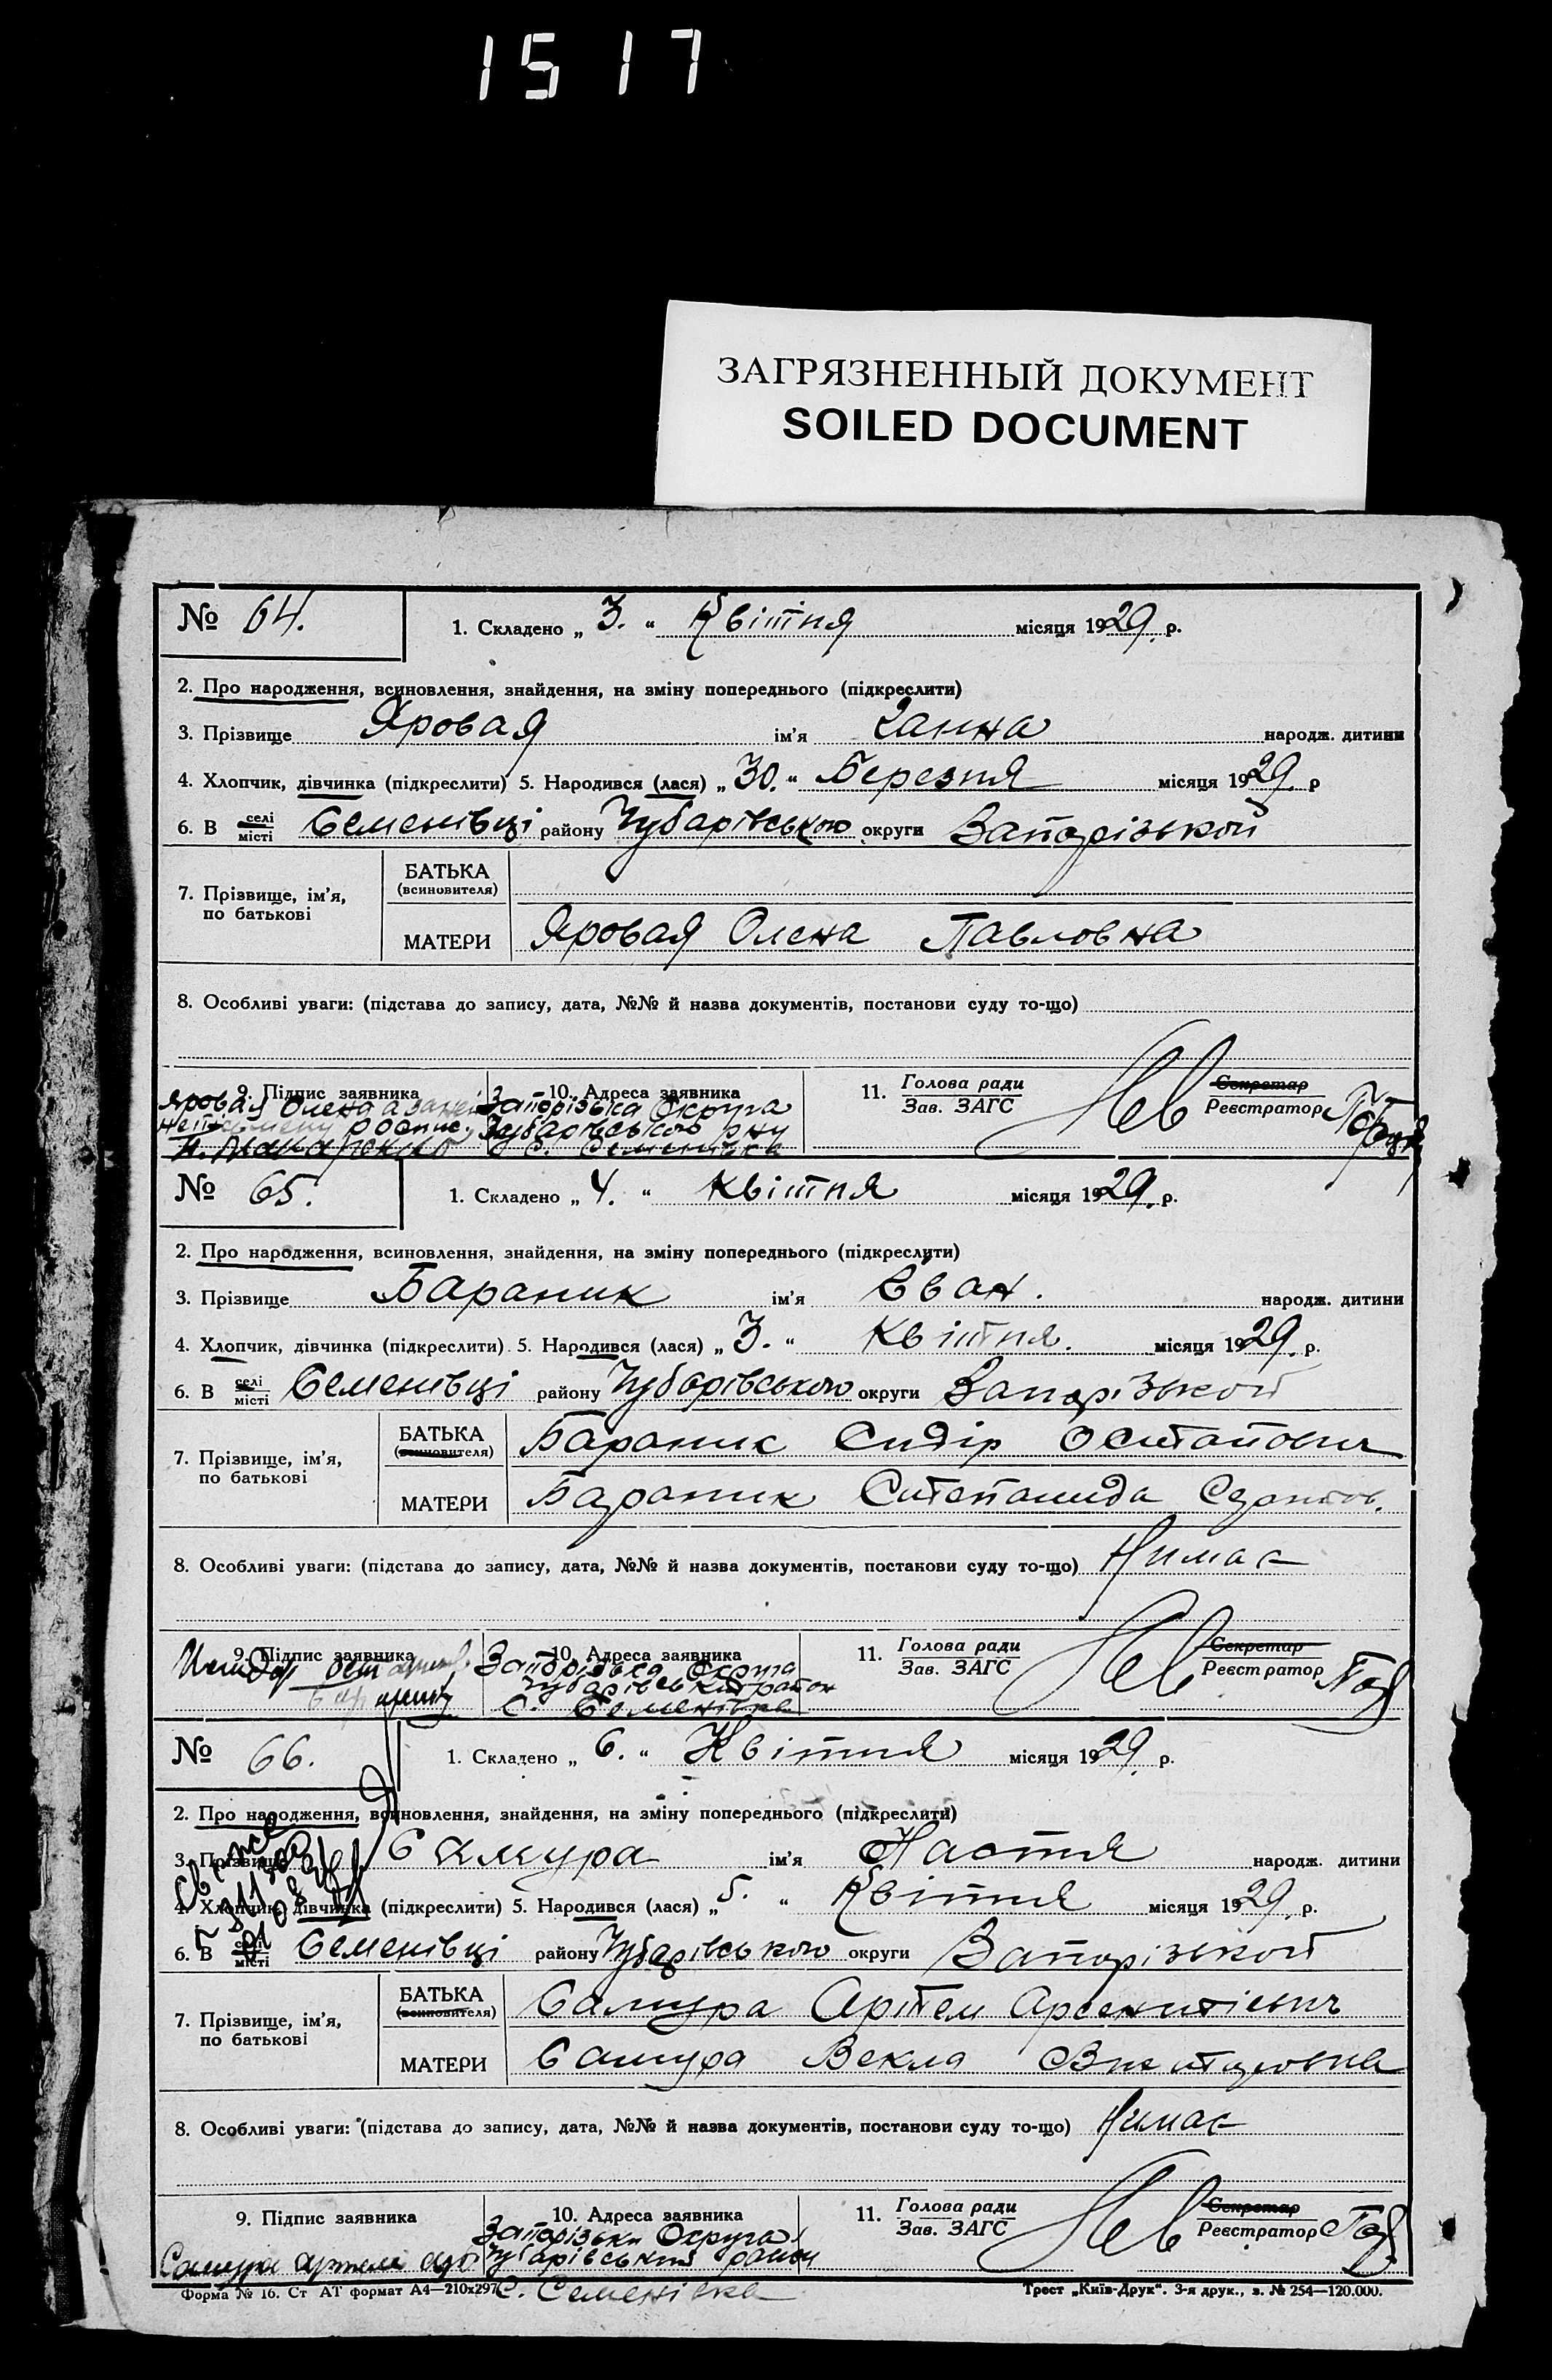 1517
ЗАГРЯЗНЕННЫЙ ДОКУМЕНТ
SOILED DOCUMENT
№ 64. 1. Складено „ 3. “ Квітня місяця 1929. р.
2. Про народження, всиновлення, знайдення, на зміну попереднього (підкреслити)
3. Прізвище Яровая ім'я Ганна народж. дитини
4. Хлопчик, дівчинка (підкреслити) 5. Народився (лася) „ 30. “ Березня місяця 1929. р
6. В селі місті Семенівці району Чубарівською округи Запорізькой
7. Прізвище, ім'я, по батькові
БАТЬКА (всиновителя)
МАТЕРИ Яровая Олена Павловна
8. Особливі уваги: (підстава до запису, дата, №№ й назва документів, постанови суду то-що)
9. Підпис заявника 10. Адреса заявника 11. Голова ради Зав. ЗАГС Секретар Реєстратор
Яровая Олена Запорізька Округа
Чубарівського рну
с. Семенівка
№ 65. 1. Складено „ 4. “ Квітня місяця 1929. р.
2. Про народження, всиновлення, знайдення, на зміну попереднього (підкреслити)
3. Прізвище Бараник ім'я Єван. народж. дитини
4. Хлопчик, дівчинка (підкреслити) 5. Народився (лася) „ 3. “ Квітня. місяця 1929. р.
6. В селі місті Семенівці району Чубарівського округи Запорізькой
7. Прізвище, ім'я, по батькові
БАТЬКА (всиновителя) Бараник Сидір Остапович
МАТЕРИ Бараник Степанида
8. Особливі уваги: (підстава до запису, дата, №№ й назва документів, постакови суду то-що) Нимає
9. Підпис заявника 10. Адреса заявника 11. Голова ради Зав. ЗАГС Секретар Реєстратор
Запорізька Округа
Чубарівський район
с. Семенівка
№ 66. 1. Складено „ 6. “ Квітня місяця 1929. р.
2. Про народження, всиновлення, знайдення, на зміну попереднього (підкреслити)
3. Прізвище Самура ім'я Настя народж. дитини
4. Хлопчик, дівчинка (підкреслити) 5. Народився (лася) „ 5. “ Квітня місяця 1929. р.
6. В селі місті Семенівці району Чубарівського округи Запорізькой
7. Прізвище, ім'я, по батькові
БАТЬКА (всиновителя) Самура Артем Арсентієвич
МАТЕРИ Самура Векла
8. Особливі уваги: (підстава до запису, дата, №№ й назва документів, постанови суду то-що) Нимає
9. Підпис заявника 10. Адреса заявника 11. Голова ради Зав. ЗАГС Секретар Реєстратор
Запорізька Округа
Самура Артем Чубарівський район
с. Семенівка
Форма № 16. Ст АТ формат А4—210х297 Трест „Київ-Друк“. 3-я друк., з. № 254—120.000.